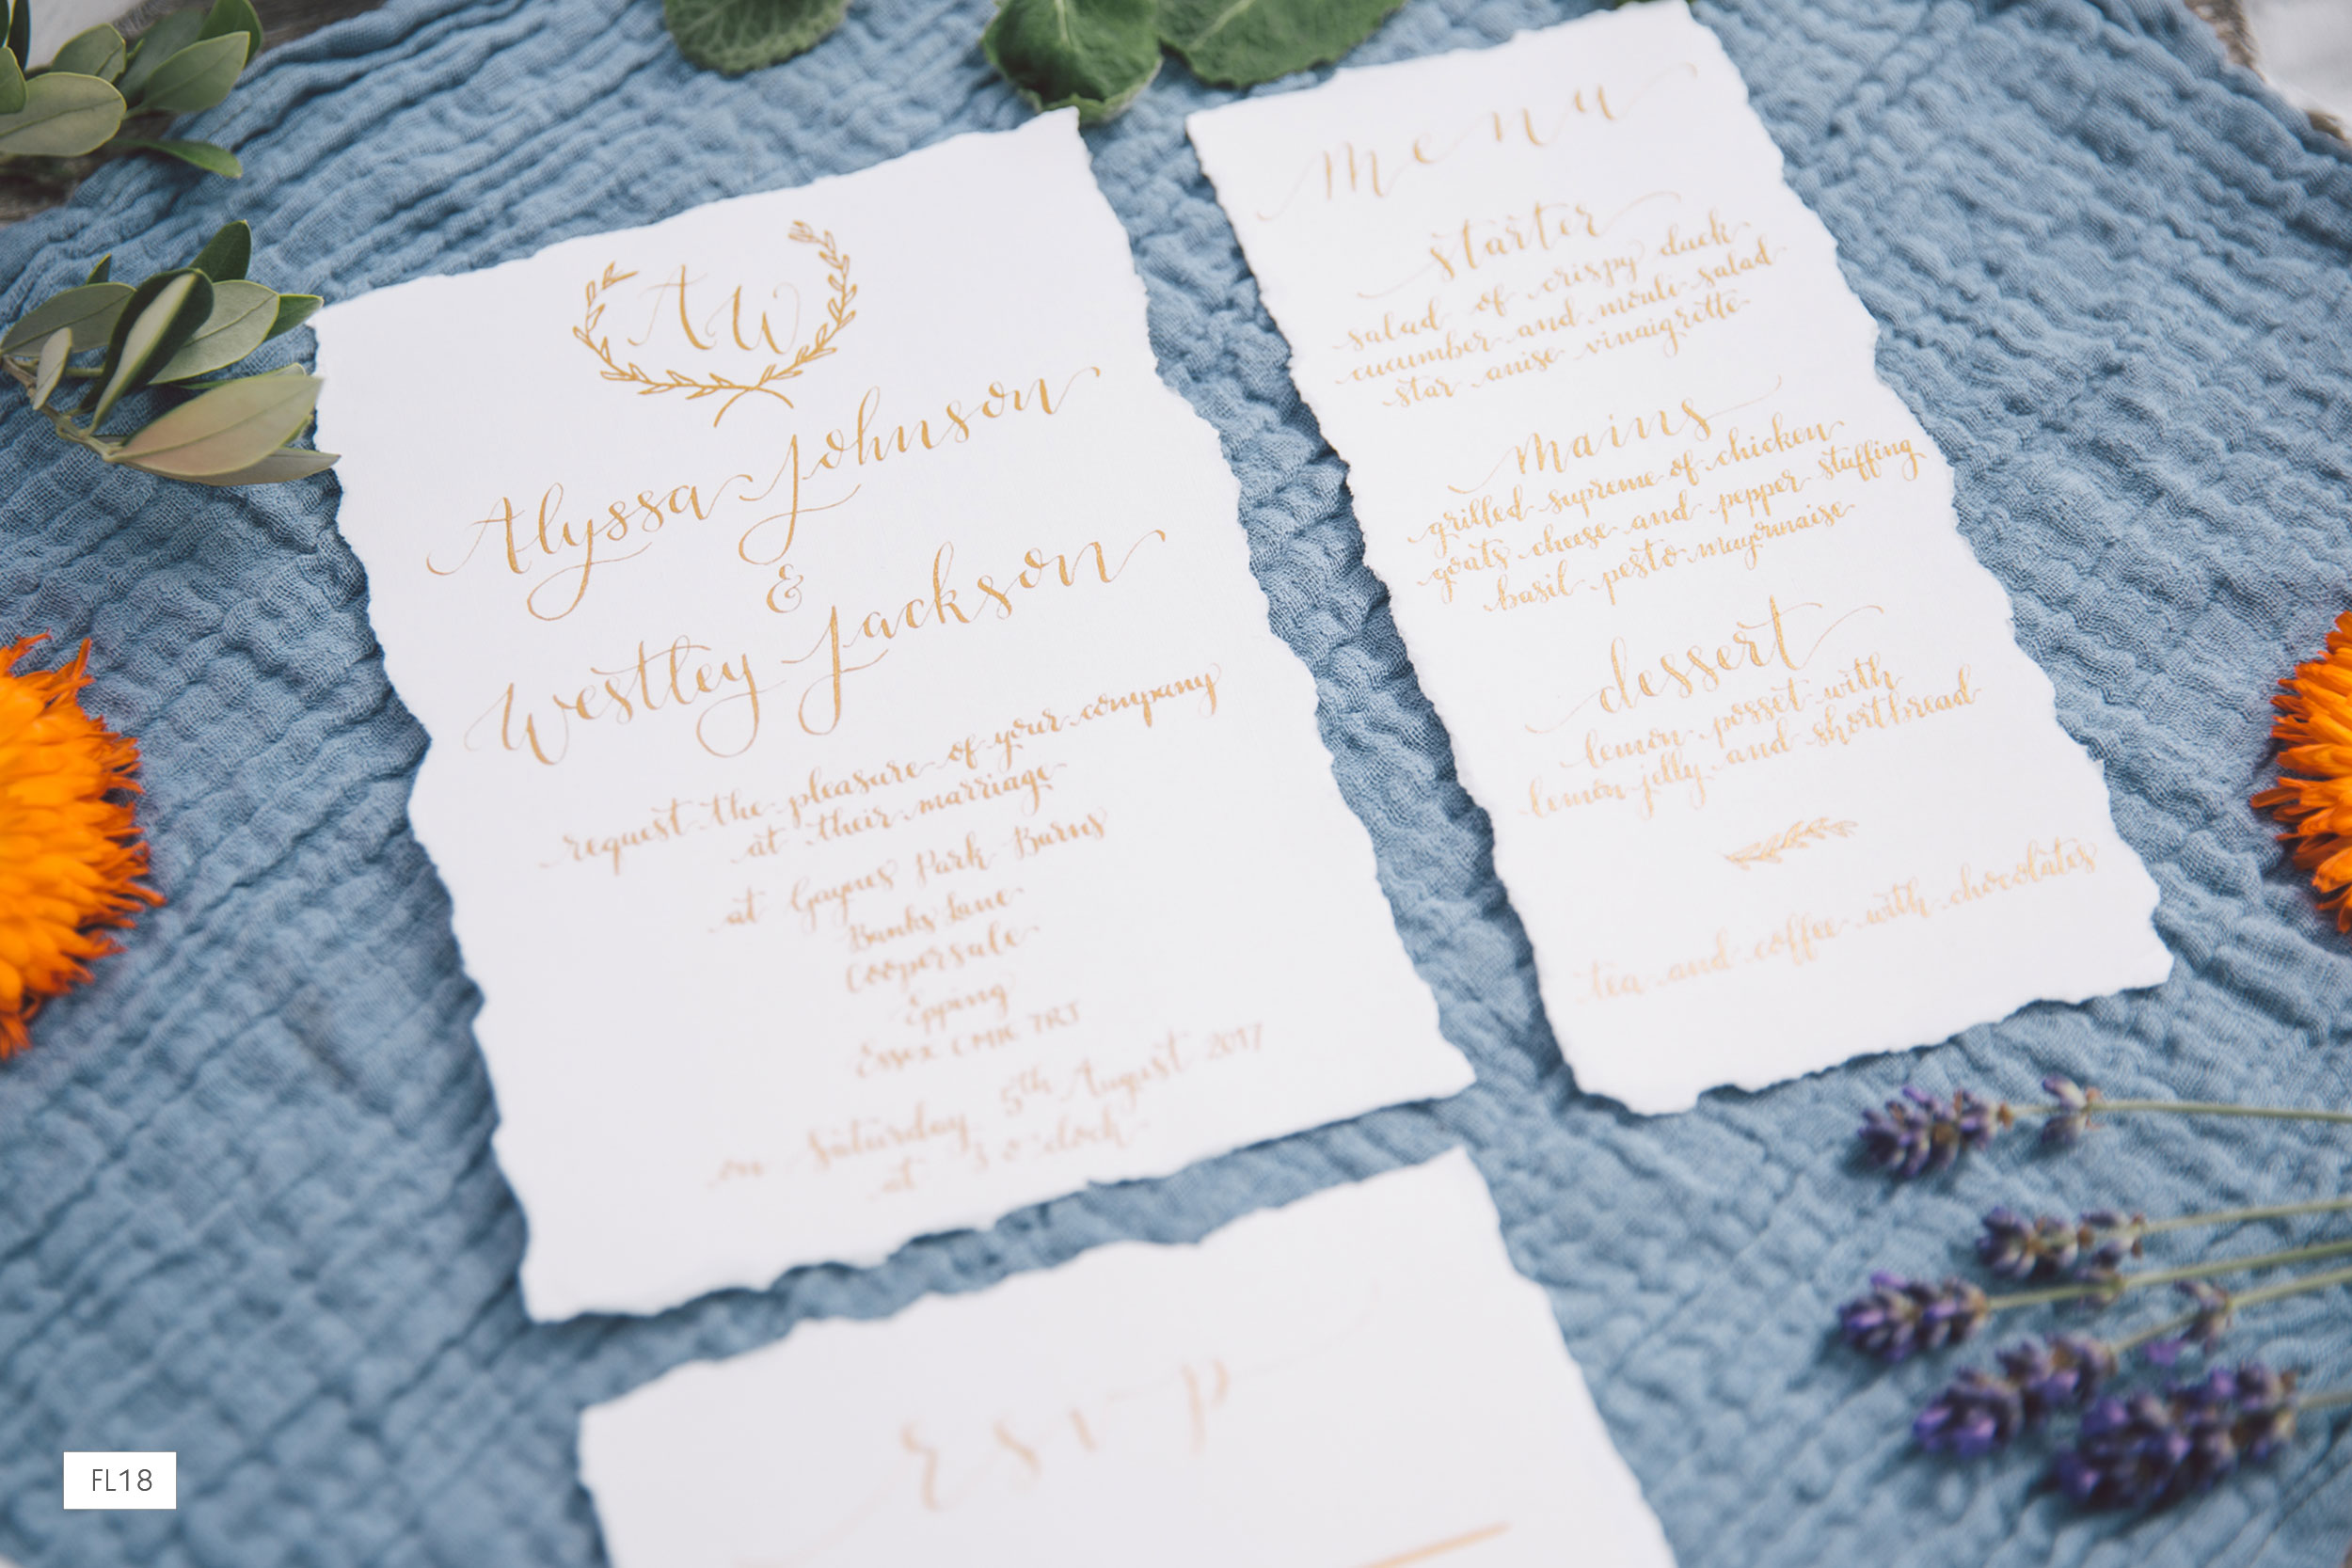 AW
Alyssa Johnson
&
Westley Jackson
request the pleasure of your company
at their marriage
at Gaynes Park Barns
Banks Lane
Coopersale
Epping
Essex CM16 7RJ
on Saturday 5th August 2017
at 3 o'clock
menu
starter
salad of crispy duck
cucumber and mouli salad
star anise vinaigrette
mains
grilled supreme of chicken
goats cheese and pepper stuffing
basil pesto mayonnaise
dessert
lemon posset with
lemon jelly and shortbread
tea and coffee with chocolates
rsvp
FL18